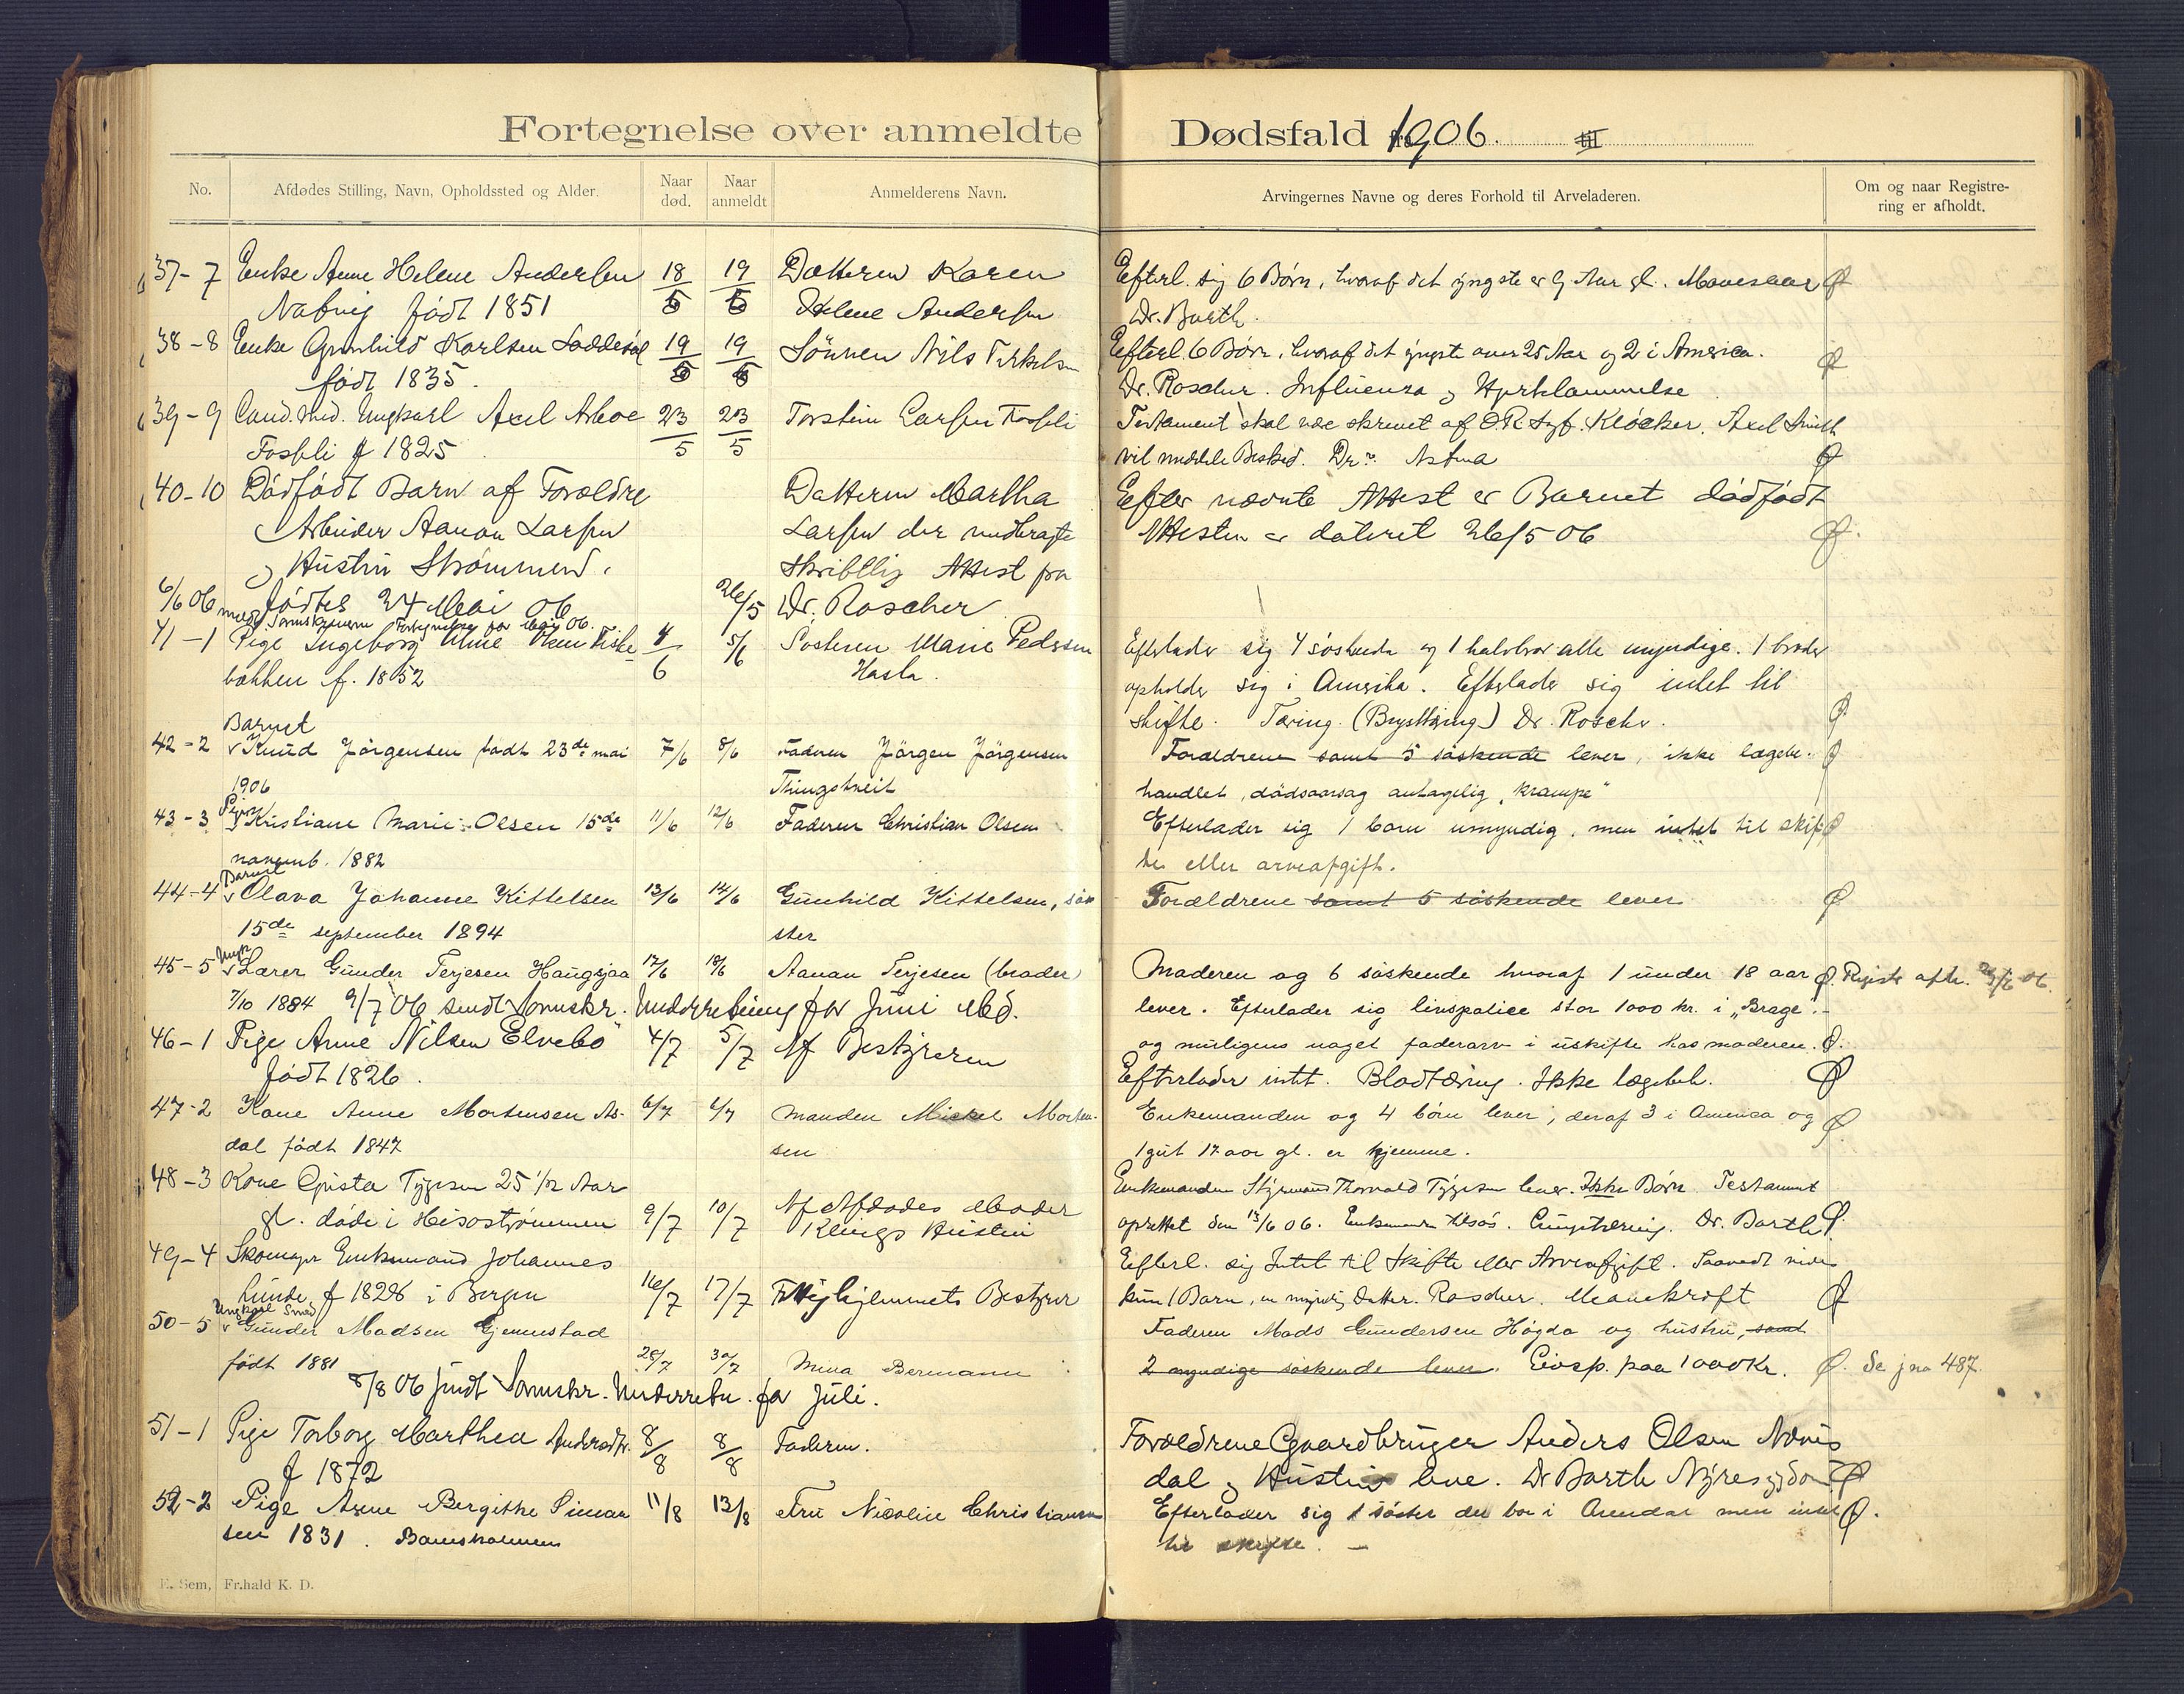 Fortegnelse over anmeldte Dødsfald 1906. til
No.
Afdødes Stilling, Navn, Opholdssted og Alder.
Naar død.
Naar anmeldt
Anmelderens Navn.
Arvingernes Navne og deres Forhold til Arveladeren.
Om og naar Registre-
ring er afholdt.
37-7 Enke Anne Helene Andersen 18/5 19/5 Datteren Karen Efterl. sig 6 Børn, hvoraf det yngste er 9 Aar gl.
født 1851 Helene Andersen Dr. Barth.
38-8 Enke Gunhild Karlsen Løddesøl 19/5 19/5 Sönnen Nils Terkelsen Efterl. 6 Børn, hvoraf det yngste over 25 Aar og 2 i America.
født 1835. Dr. Roscher. Influenza og Hjerteklammelse
39-9 Cand. med. Ungkarl Axel Arboe 23/5 23/5 Torstein Larsen Fosbli Testament skal være skrevet af O.R.Sagf. Kløcker. Axel Smith
Fosbli f 1825 vil meddele Besked. Dr. Astma
40-10 Dødfødt Barn af Forældre Datteren Martha Efter nævnte Attest er Barnet dødfødt
Arbeider Aanon Larsen Larsen der medbragte Attesten er dateret 26/5 06
og Hustru Strømmen. Skriftlig Attest fra
fødtes 24 Mai 06 26/5 Dr. Roscher
6/6 06 Fortegnelse for Mai 06.
41-1 Pige Ingeborg Aline Olsen Fiske- 4/6 5/6 Søsteren Marie Pedersen Efterlader sig 4 søskende og 1 halvbror alle myndige. 1 broder
bækken f. 1852 Hasla. opholder sig i Amerika. Efterlader sig intet til
skifte. Tæring. (Brysttæring) Dr. Roscher.
Barnet
42-2 Knud Jörgensen födt 23de mai 7/6 8/6 Faderen Jörgen Jörgensen Forældrene samt 5 søskende lever, ikke lægebe-
1906 Thingstveit handlet, dødsaarsag antagelig "krampe"
Pigen
43-3 Kristiane Marie Olsen 15de 11/6 12/6 Faderen Christian Olsen Efterlader sig 1 barn umyndig, men intet til skif-
novemb. 1882 te eller arveafgift.
Barnet
44-4 Olava Johanne Kittelsen 13/6 14/6 Gunhild Kittelsen, søs- Forældrene samt 5 søskende lever
15de september 1894 ster
Ungk.
45-5 Lærer Gunder Terjesen Haugsjaa 17/6 18/6 Aanan Terjesen (broder) Moderen og 6 søskende hvoraf 1 under 18 aar Registr. afh.
7/10 1884 lever. Efterlader sig livspolice stor 1000 kr. i "Brage".
9/7 06 sendt Sorenskr. Underretning for Juni Md.
og muligens noget faderarv i uskifte hos moderen.
46-1 Pige Anne Nilsen Elvebo 4/7 5/7 Af Bestyreren Efterlader intet. Blodtæring. Ikke lægebeh.
født 1826.
47-2 Kone Anne Mortensen As- 6/7 6/7 Manden Mickel Morten- Enkemanden og 4 børn lever, deraf 3 i America og
dal født 1847 sen 1 gut 17 aar gl. er hjemme.
48-3 Kone Gusta Tygesen 25 1/2 Aar Enkemanden Styrmand Thorvald Tygesen lever. Ikke Børn. Testament
gl. døde i Hisøstrømmen 9/7 10/7 Af Afdødes Moder oprettet den 13/6 06. Enkemanden tilsøs. Lungetæring. Dr. Barth
Klings Hustru
49-4 Skomager Enkemand Johannes Efterl. sig Intet til Skifte eller Arveafgift. Saavidt vides
Lunde f 1828 i Bergen 16/7 17/7 Pleiehjemmets Bestyrer kun 1 Barn, en myndig Datter. Roscher. Mavekræft
Ungkarl Smed
50-5 Gunder Madsen Gjennestad Faderen Mads Gundersen Høgda og hustru, samt
født 1881 28/7 30/7 Mina Bermann 2 myndige søskende lever. Livsp. paa 1000 Kr. Se jno 487.
8/8 06 sendt Sorenskr. Underretn. for Juli.
51-1 Pige Torborg Marthea Andersdtr. 8/8 8/8 Faderen. Forældrene Gaardbruger Anders Olsen Næves
f 1872 dal og Hustru leve. Dr Barth Nyresygdom
52-2 Pige Anne Bergithe Simon 11/8 13/8 Fru Nicoline Christiansen Efterlader sig 1 søster der bor i Arendal men intet
sen 1831. til skifte. —
E. Sem, Fr.hald K. D.